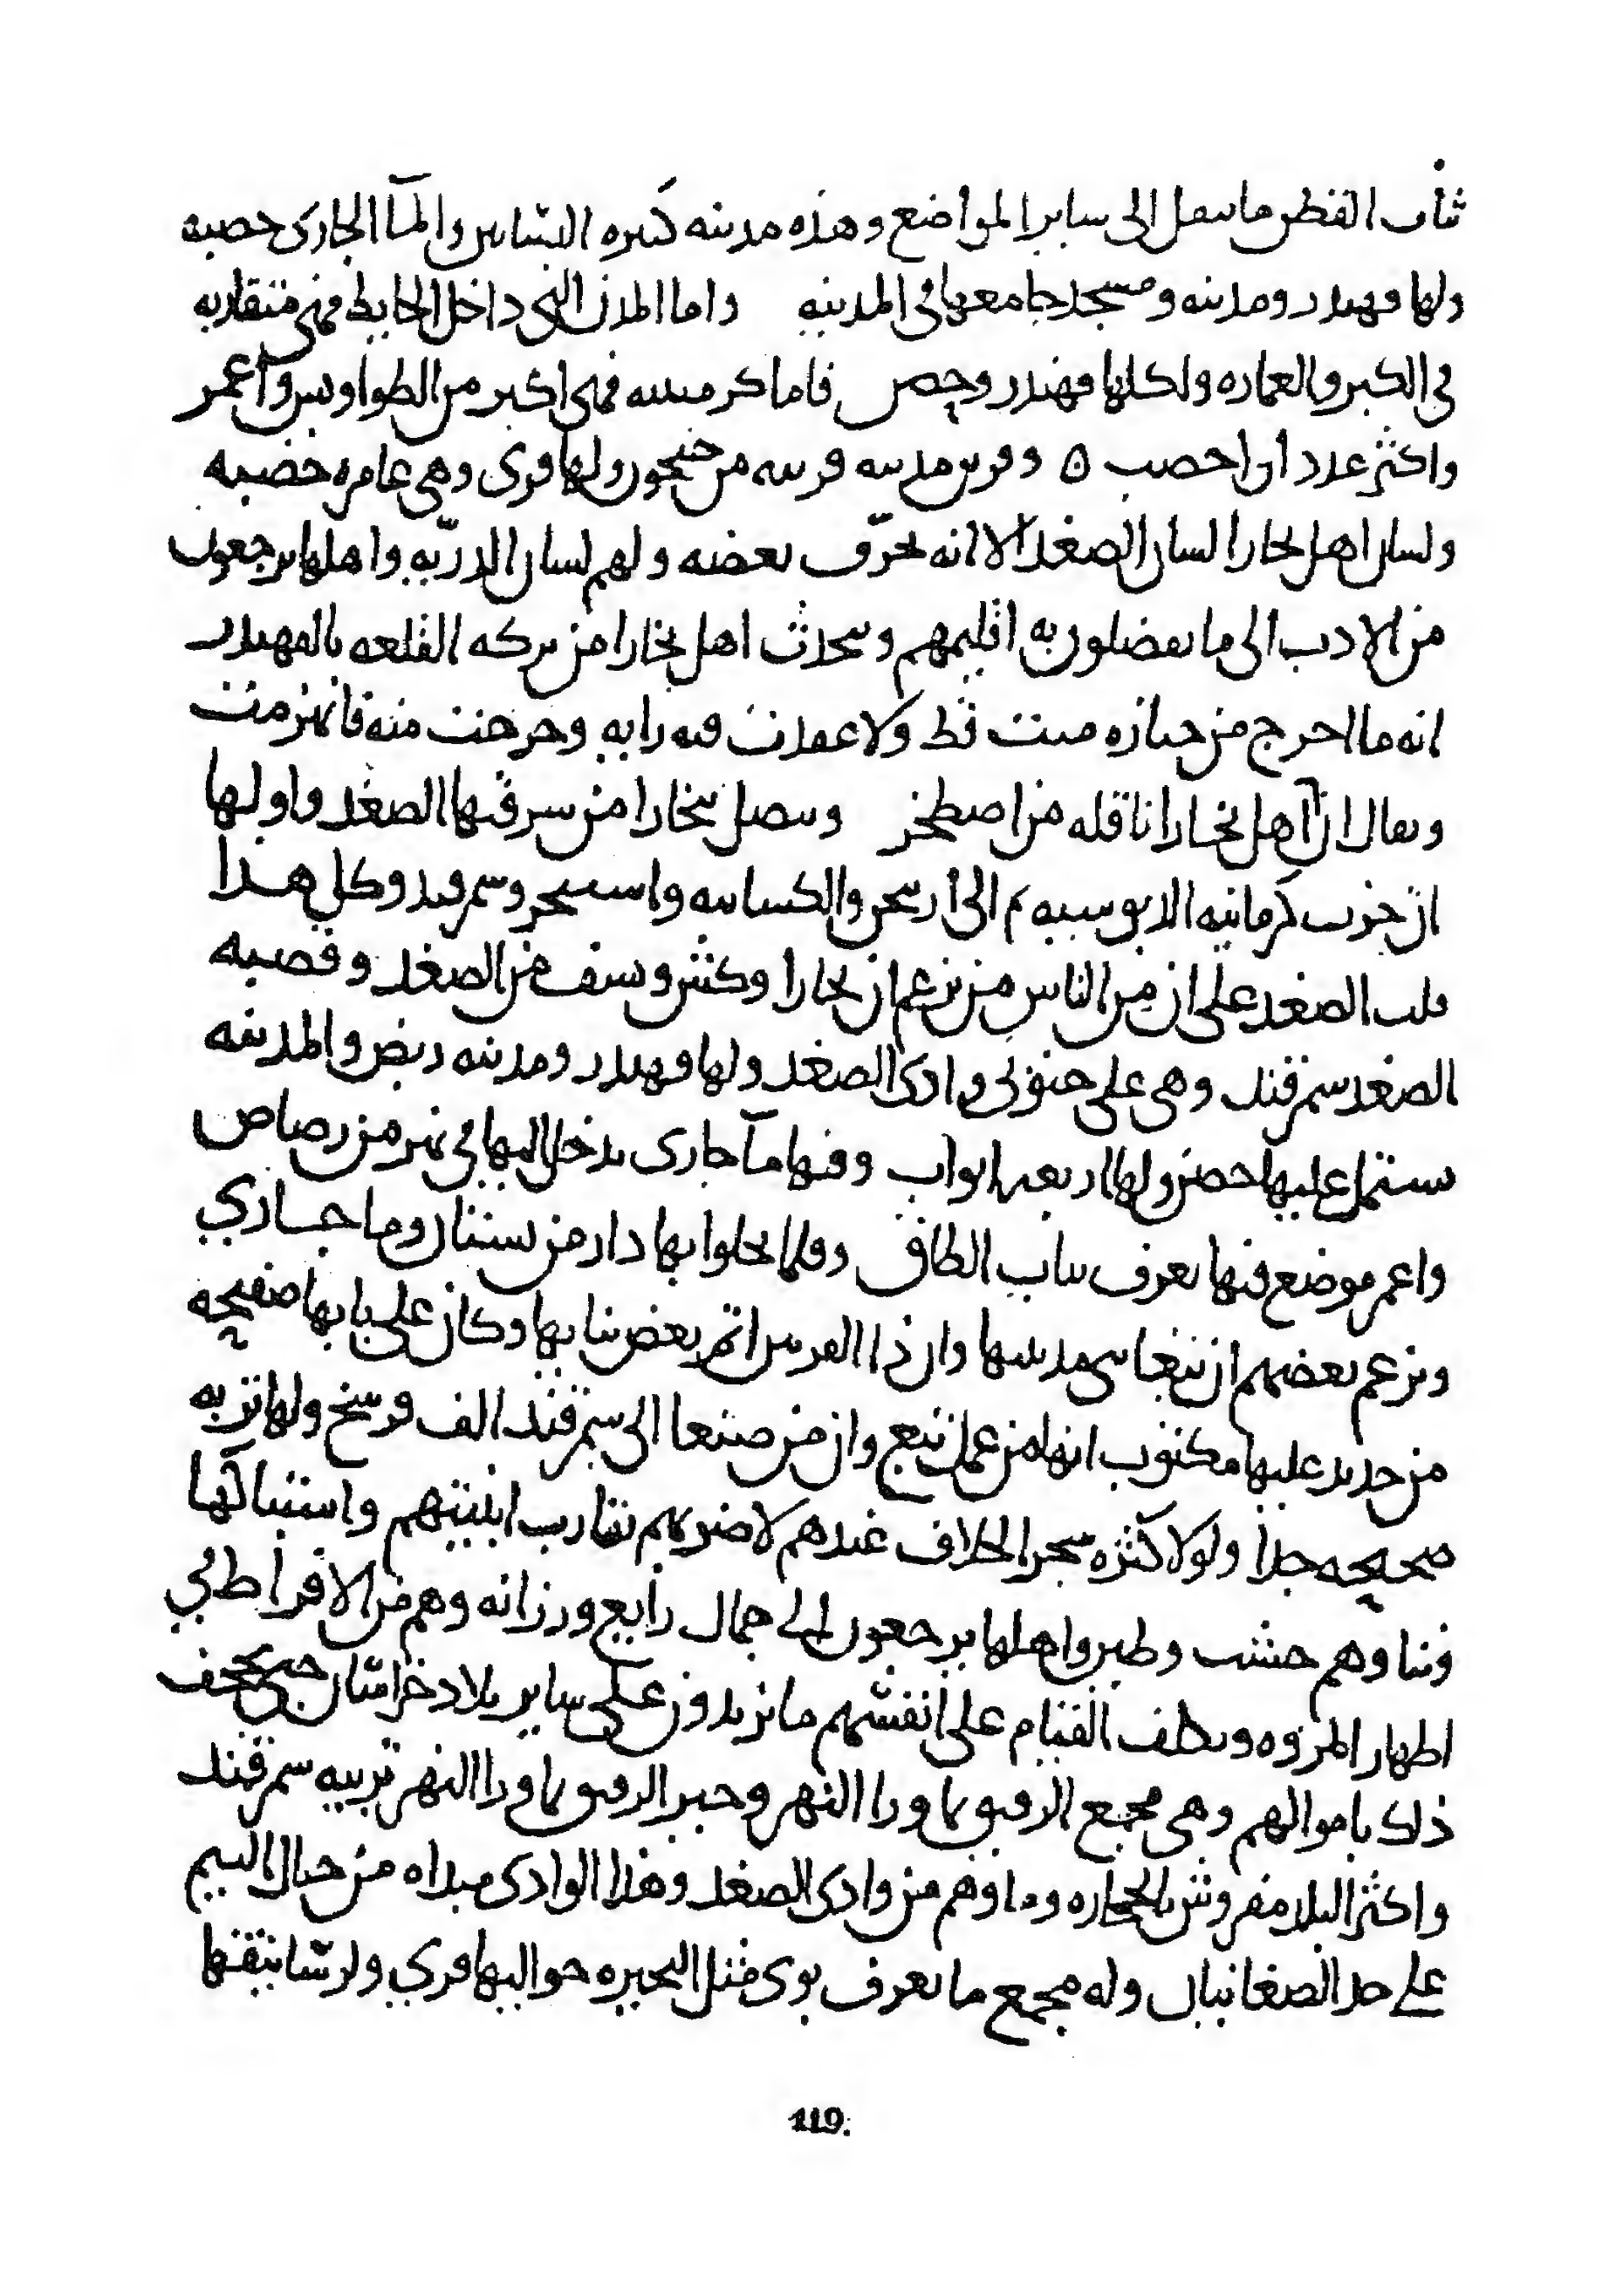 ثياب القطن ما ينقل الى ساير المواضع وهذه مدينه كثيره البساتين والمآ الجارى خصبه
ولها قهندر ومدينه ومسجد جامعها فى المدينه واما المدن التى داخل الحايط فهى متقاربه
فى الكبر والعماره ولكلها قهندر وحصن فاما كرمينيه فهى اكبر من الطواويس وآعمر
واكثر عددا واخصب ه وفربر مدينه قريبه من جيحون ولها قرى وهى عامره خصبه
ولسان اهل بخارا لسان الصغد الا انه يحرّف بعضه ولهم لسان الدرّيه واهلها يرجعون
من الادب الى ما يفضلون به اقليمهم ويتحدث اهل بخارا من بركه القلعه بالقهندر
انه ما اخرج من جنازه ميت قط ولا عقدت فيه رايه وخرجت منه فانهزمت
ويقال ان آهل بخارا ناقله من اصطخر ويتصل ببخارا من شرقيها الصغد واولها
ان جزت كرمانيه الدبوسيه ثم الى أربنجن والكشانيه واشتيخن وسمرقند وكل هذا
قلب الصغد على ان من الناس من يزعم ان بخارا وكش ونسف من الصغد وقصبه
الصغد سمرقند وهى على جنوبى وادى الصغد ولها قهندر ومدينه ربض والمدينه
يشتمل عليها حصن ولها اربعه ابواب وفيها مآ جارى يدخل اليها فى نهر من رصاص
واعمر موضع فيها يعرف بباب الطاق وقلما يخلوا بها دار من بستان وما جاري
ويزعم بعضهم ان تبعا بنى مدينتها وان ذا القرنين اتم بعض بنايها وكان على بابها صفيحه
من حديد عليها مكتوب انها من عمل تبع وان من صنعا الى سمرقند الف فرسخ ولها تربه
صحيحه جدا ولولا كثره سجر الخلاف عندهم لاضر بهم تقارب ابنيتهم واشتباكها
وبناوهم خشب وطين واهلها يرجعون الى جمال رايع ورزانه وهم من الافراط فى
اظهار المروه وتكلف القيام على انفسهم ما يزيدون على ساير بلاد خراسان حتى يجحف
ذلك باموالهم وهى مجمع الرقيق بماورا النهر وخير الرقيق بماورا النهر تربيه سمرقند
واكثر البلد مفروش بالحجاره وماوهم من وادى الصغد وهذا الوادى مبداه من جبال البتم
على حد الصغانيان وله مجمع ما يعرف بوى مثل البحيره حواليها قري
119.